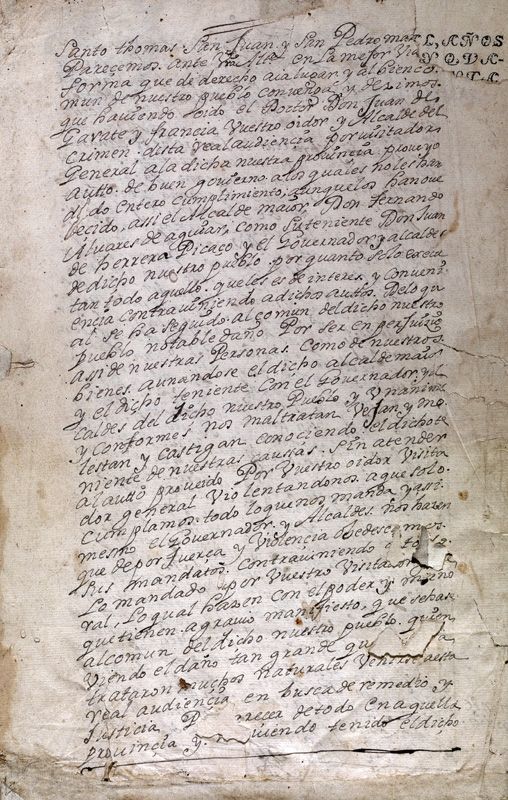 L, AÑOS
NOVA-
OTA
Santo thomas Sien Juan y San Pedro mar
Pareçemos. ante Vra Rl en La mejor Via
forma que de derecho aialugar y al bien co
mun de nuestro pueblo convenga y dezimos.
que haviendo sido el Doctor Don Juan de
Garate y francia Vuestro oidor y Alcalde del
Crimen desta real audiençia Por visitador
General a la dicha nuestra provinçia proveyo
autto. de buen govierno a los quales no le ihan
dado entero cumplimiento, aunque los han ove
decido, assi el Alcalde maior, Don Fernando
Alvares de aguiar, como su teniente Don Juan
de herrera Picaço y el Governador y alcaldes
de dicho nuestro pueblo por quanto solo execu
tan todo aquello que les es de interes y Conveni
ençia Contraviniendo a dichos auttos. Delo qu
al se ha seguido al comun del dicho nuestro
pueblo notable daño Por ser en perjuizio
assi de nuestras Personas. Como de nuestros.
bienes, aunandose el dicho alcalde maior
y el dicho teniente Con el Governador, y al
caldes del dicho nuestro Pueblo y Vnanimes
y Conformes nos maltratan Vejan y mo
lestan y castigan conociendo el dicho te
niente de nuestras caussas. sin atender
al autto proveido Por Vuestro oidor Visita
dor general Violentandonos a que solo
Cumplamos todo lo que nos manda y assi
mesmo el Governador. y Alcaldes. nos hazen
que de por fuerça y Violencia obedescamos
sus mandatos. Contraviniendo a todo
Lo mandado por Vuestro Visitador
ral. Lo qual hazen con el Poder y mano
que tienen. agravio manifiesto. que se has
al comun del dicho nuestro pueblo. quien
Viendo el daño tan grande qu
trataron muchos naturales Venirse a esta
real audiencia en busca de remedio y
Justicia P recer de todo en aquella
provinçia y viendo tenido el dicho